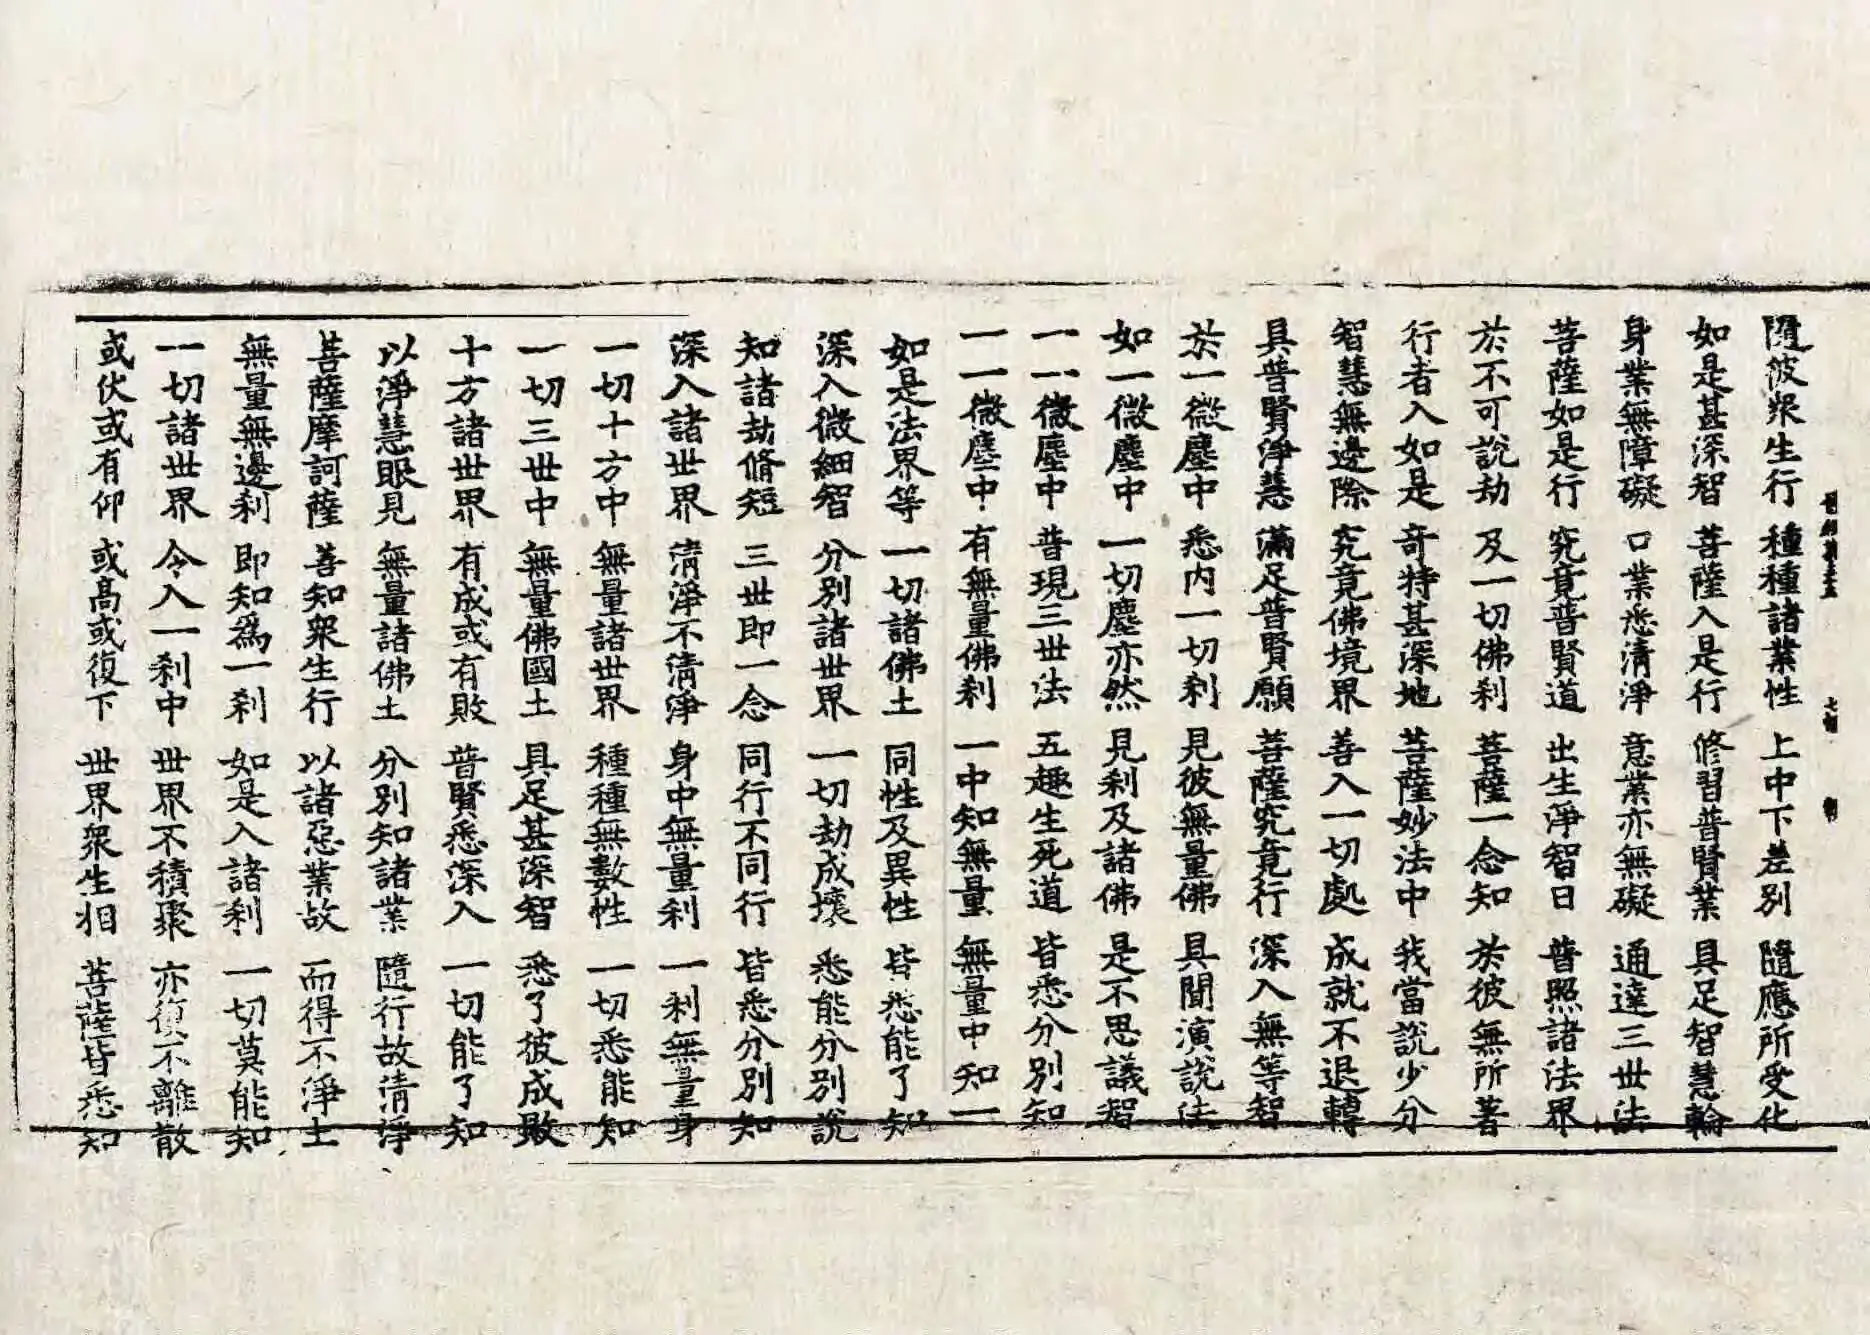 隨彼衆生行 種種諸業性 上中下差別 隨應所受化
如是甚深智 菩薩入是行 修習普賢業 具足智慧輪
身業無障礙 口業悉清淨 意業亦無礙 通達三世法
菩薩如是行 究竟普賢道 出生淨智日 普照諸法界
於不可說劫 及一切佛刹 菩薩一念知 於彼無所著
行者入如是 奇特甚深地 菩薩妙法中 我當說少分
智慧無邊際 究竟佛境界 善入一切處 成就不退轉
具普賢淨慧 滿足普賢願 菩薩究竟行 深入無等智
於一微塵中 悉內一切刹 見彼無量佛 具聞演說法
如一微塵中 一切塵亦然 見刹及諸佛 是不思議智
一一微塵中 普現三世法 五趣生死道 皆悉分別知
一一微塵中 有無量佛刹 一中知無量 無量中知一
如是法界等 一切諸佛土 同性及異性 皆悉能了知
深入微細智 分別諸世界 一切劫成壞 悉能分別說
知諸劫脩短 三世即一念 同行不同行 皆悉分別知
深入諸世界 淸淨不淸淨 身中無量刹 一刹無量身
一切十方中 無量諸世界 種種無數性 一切悉能知
一切三世中 無量佛國土 具足甚深智 悉了彼成敗
十方諸世界 有成或有敗 普賢悉深入 一切能了知
以淨慧眼見 無量諸佛土 分別知諸業 隨行故清淨
菩薩摩訶薩 善知衆生行 以諸惡業故 而得不淨土
無量無邊刹 即知爲一刹 如是入諸刹 一切莫能知
一切諸世界 令入一刹中 世界不積聚 亦復不離散
或伏或有仰 或高或復下 世界衆生相 菩薩皆悉知